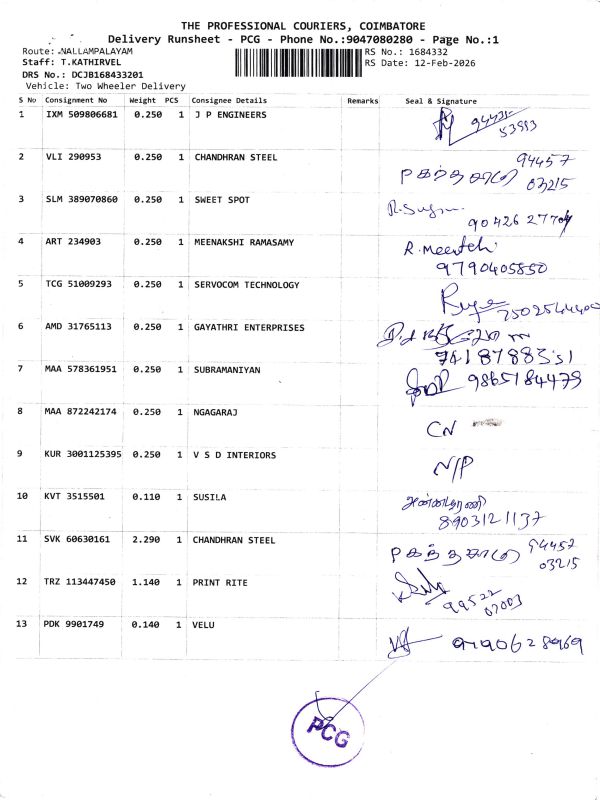 THE PROFESSIONAL COURIERS, COIMBATORE
Delivery Runsheet - PCG - Phone No.:9047080280 - Page No.:1
Route: NALLAMPALAYAM
RS No.: 1684332
Staff: T.KATHIRVEL
RS Date: 12-Feb-2026
DRS No.: DCJB168433201
Vehicle: Two Wheeler Delivery
S No Consignment No Weight PCS Consignee Details Remarks Seal & Signature
1 IXM 509806681 0.250 1 J P ENGINEERS
2 VLI 290953 0.250 1 CHANDHRAN STEEL 94457
P கந்தசாமி 03215
3 SLM 389070860 0.250 1 SWEET SPOT
4 ART 234903 0.250 1 MEENAKSHI RAMASAMY
9790405850
5 TCG 51009293 0.250 1 SERVOCOM TECHNOLOGY
7502544400
6 AMD 31765113 0.250 1 GAYATHRI ENTERPRISES
7 MAA 578361951 0.250 1 SUBRAMANIYAN
9865184479
8 MAA 872242174 0.250 1 NGAGARAJ
CN
9 KUR 3001125395 0.250 1 V S D INTERIORS
N/P
10 KVT 3515501 0.110 1 SUSILA
8903121137
11 SVK 60630161 2.290 1 CHANDHRAN STEEL
P கந்தசாமி 94457
03215
12 TRZ 113447450 1.140 1 PRINT RITE
99522
13 PDK 9901749 0.140 1 VELU
PCG